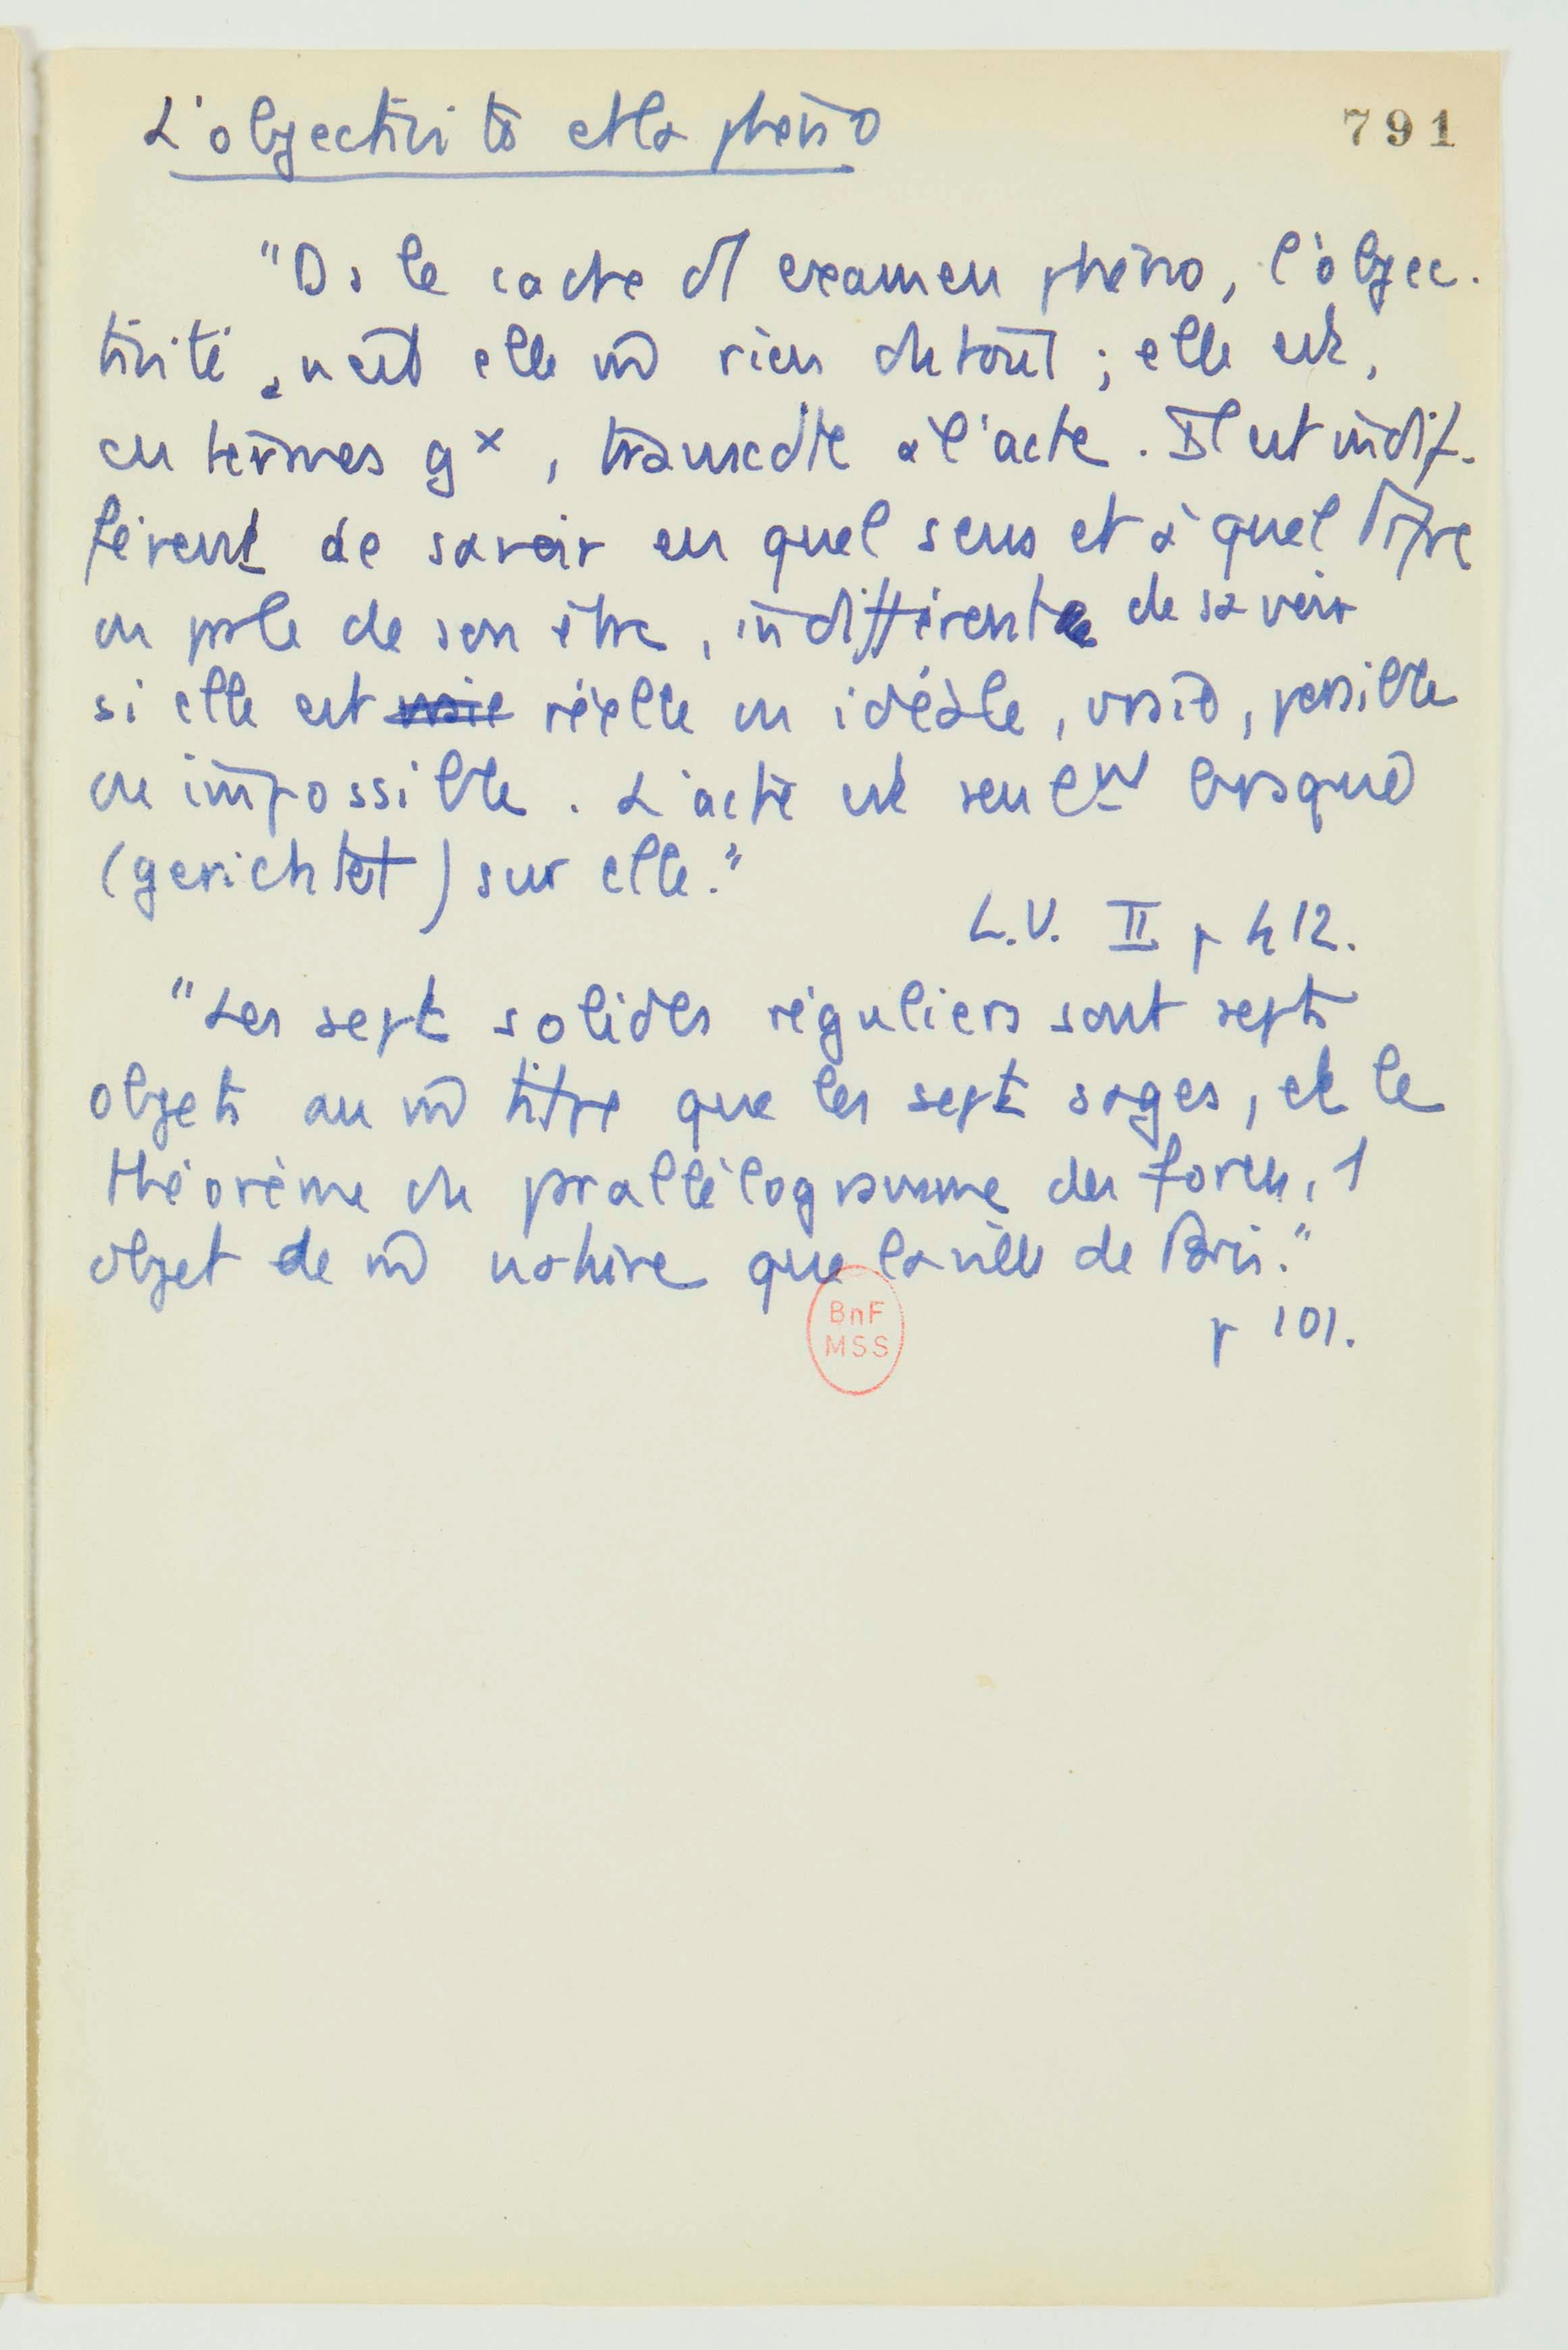 L'objectivité et la phéno
791
"Ds le cadre d'1 examen phéno, l'objec-
tivité n'est elle m̂ rien du tout ; elle est,
en termes gx, transcdte à l'acte. Il est indif-
férent de savoir en quel sens et à quel titre
on parle de son être, indifférent de savoir
si elle est réelle ou idéale, vraie, possible
ou impossible. L'acte est seult braqué
(gerichtet) sur elle."
L.U. II p 412.
"Les sept solides réguliers sont sept
objets au m̂ titre que les sept sages, et le
théorème du prallélogramme des forces, 1
objet de m̂ nature que la ville de Paris."
p 101.
BnF
MSS